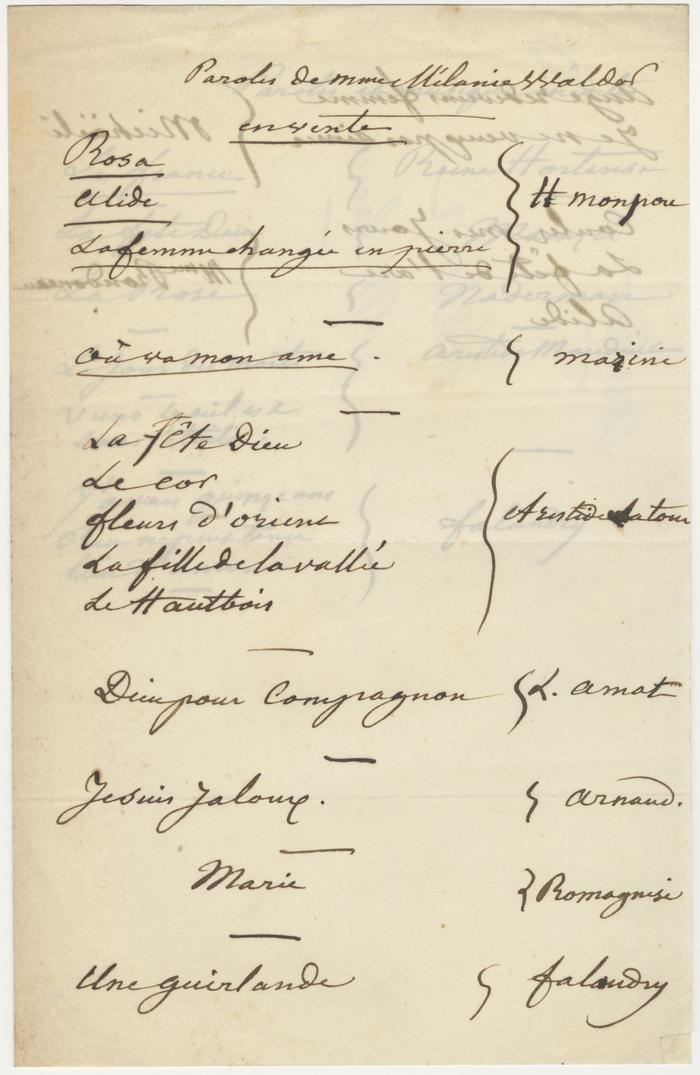 Paroles de mme Mélanie Waldor
en vente
Rosa
alide
La femme changée en pierre
H monpou
où va mon ame .
mazini
La fête Dieu
Le cor
fleurs d'orient
La fille de la vallée
Le Hautbois
Aristide Latour
Dieu pour Compagnon
L. amat
Je suis Jaloux.
arnaud.
Marie
Romagnesi
Une guirlande
falandry